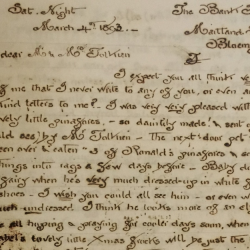 Sat. Night The Bank
March 4th 1893. Maitland
dear Mr & Mrs Tolkien Bloem
I expect you all think
of me that I never write to any of you, or even
kind letters to me. I was very very pleased wi
vely little pinafores, – so daintily made, & sent
ald see) by Mr Tolkien – The next-door pet
een over & eaten 3 of Ronald's pinafores &
things into rags a few days before – Baby do
fairy when he's very much dressed-up in white
shoes – I wish you could see him – or even w
much undressed. I think he looks more of an el
all hoping & praying for cooler days soon, wh
abel's lovely little Xmas frocks will be just